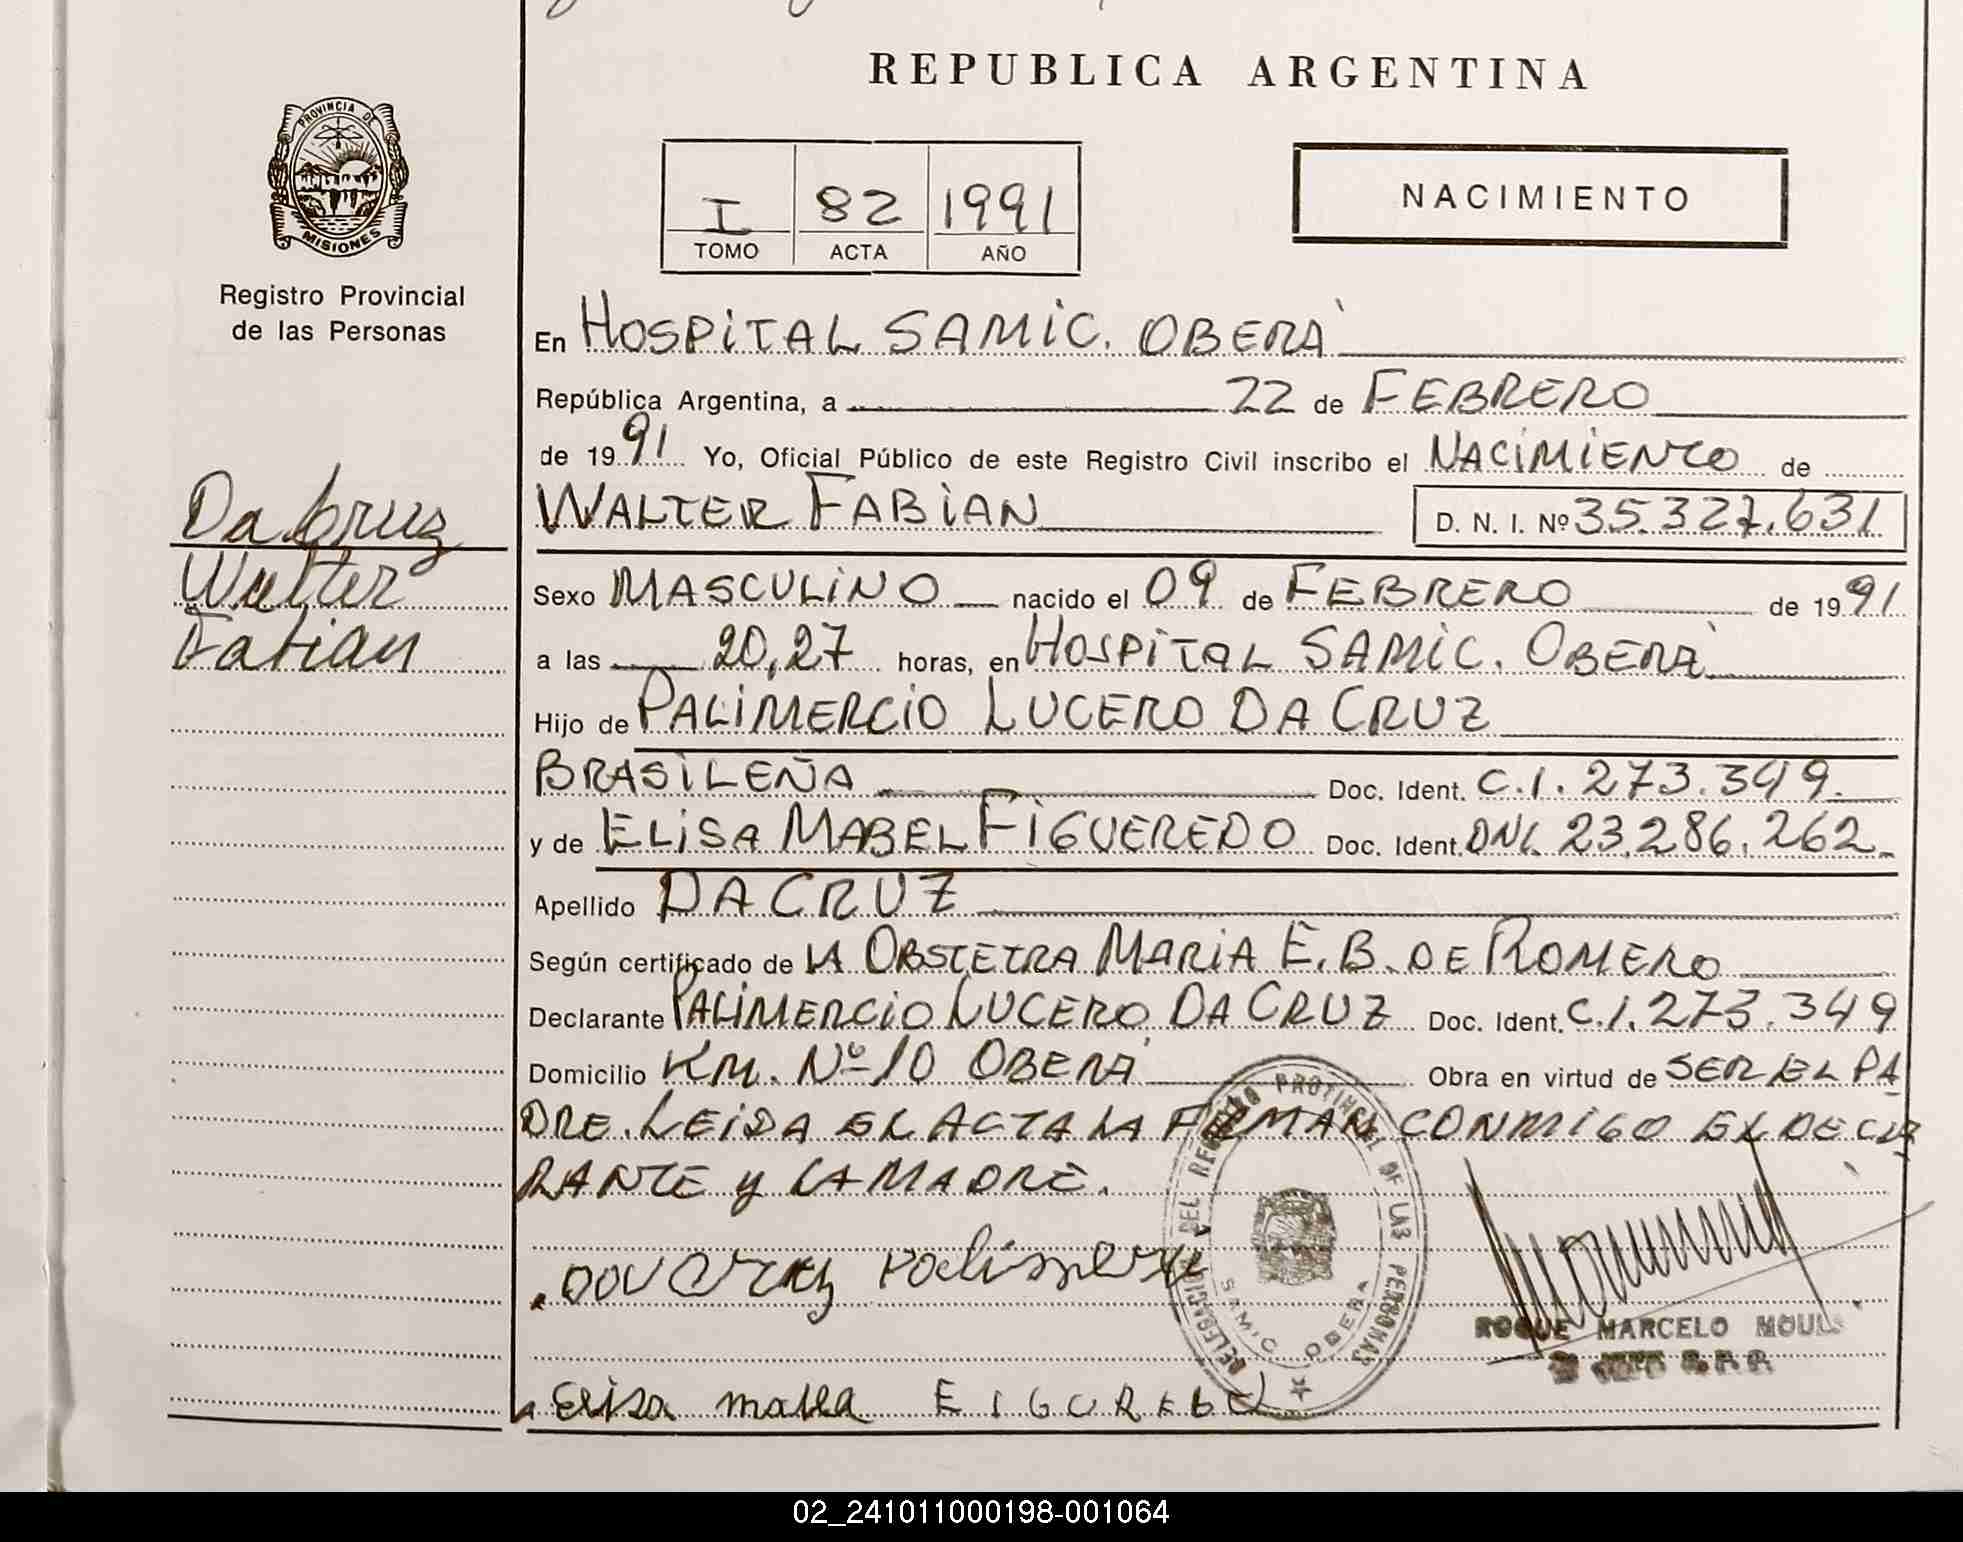 REPUBLICA ARGENTINA
PROVINCIA DE
MISIONES
Registro Provincial
de las Personas
I 82 1991
TOMO ACTA AÑO
NACIMIENTO
Da Cruz
Walter
Fabian
En HOSPITAL SAMIC. OBERÁ
República Argentina, a 22 de FEBRERO
de 1991 Yo, Oficial Público de este Registro Civil inscribo el NACIMIENTO de
WALTER FABIAN D. N. I. Nº 35.327.631
Sexo MASCULINO nacido el 09 de FEBRERO de 1991
a las 20,27 horas, en HOSPITAL SAMIC. OBERÁ
Hijo de PALIMERCIO LUCERO DA CRUZ
BRASILEÑA Doc. Ident. C.I. 273.349.
y de ELISA MABEL FIGUEREDO Doc. Ident. DNI. 23.286.262
Apellido DA CRUZ
Según certificado de LA OBSTETRA MARIA E. B. DE ROMERO
Declarante PALIMERCIO LUCERO DA CRUZ Doc. Ident. C.I. 273.349
Domicilio KM. Nº 10 OBERÁ Obra en virtud de SER EL PA
DRE. LEIDA EL ACTA LA FIRMAN CONMIGO EL DECLA
RANTE Y LA MADRE.
DELEGACION DEL REGISTRO PROVINCIAL DE LAS PERSONAS
SAMIC OBERA
ROQUE MARCELO
Elisa
02_241011000198-001064